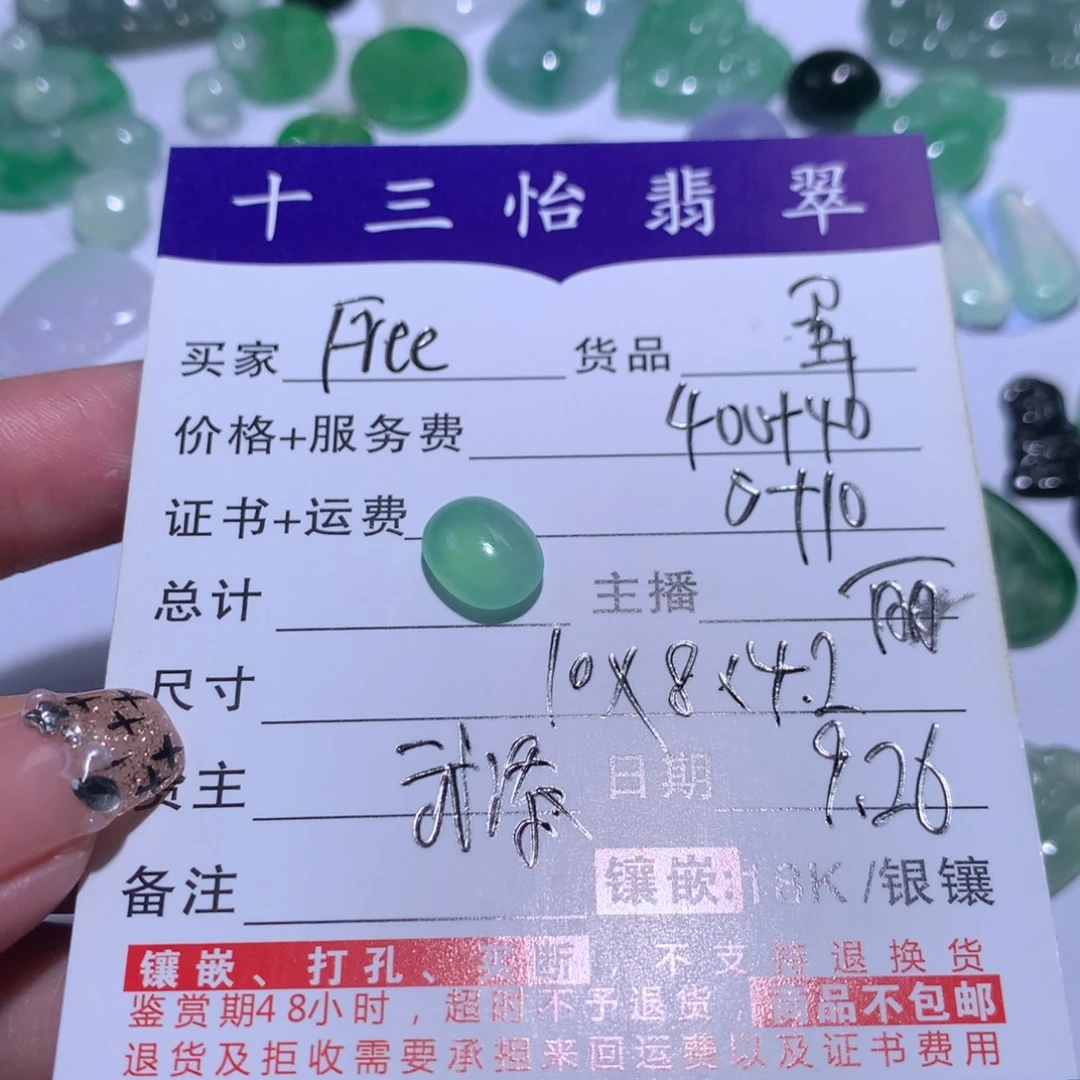 十三怡翡翠
买家 Free 货品 蛋
价格+服务费 400+40
证书+运费 0+10
总计 主播 丽
尺寸 10x8x4.2
货主 日期 9.26
备注 镶嵌:18K/银镶
镶嵌、打孔、买断,不支持退换货
鉴赏期48小时,超时不予退货,商品不包邮
退货及拒收需要承担来回运费以及证书费用